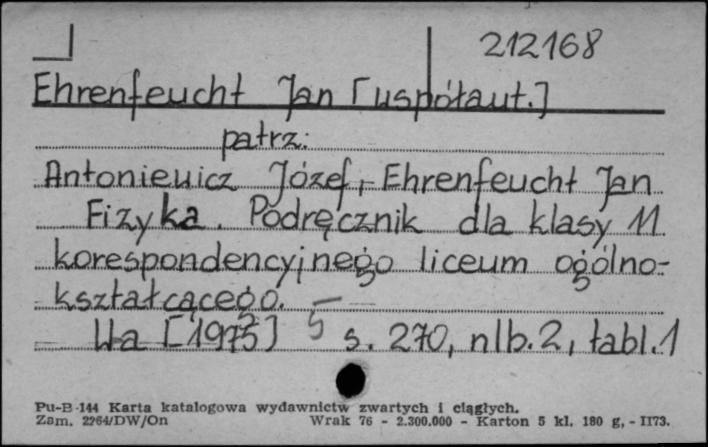 212168
Ehrenfeucht Jan [współaut.]
patrz:
Antoniewicz Józef, Ehrenfeucht Jan
Fizyka. Podręcznik dla klasy 11
korespondencyjnego liceum ogólno-
kształcącego.
Wa [1973] 5 s. 270, nlb. 2, tabl. 1
Pu-B-144 Karta katalogowa wydawnictw zwartych i ciągłych.
Zam. 2264/DW/On Wrak 76 - 2.300.000 - Karton 5 kl. 180 g, - II73.